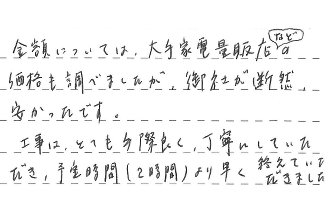 金額については、大手家電量販店などの
価格も調べましたが、御社が断然、
安かったです。
工事は、とても手際良く、丁寧にしていた
だき、予定時間(2時間)より早く終えていた
だきました